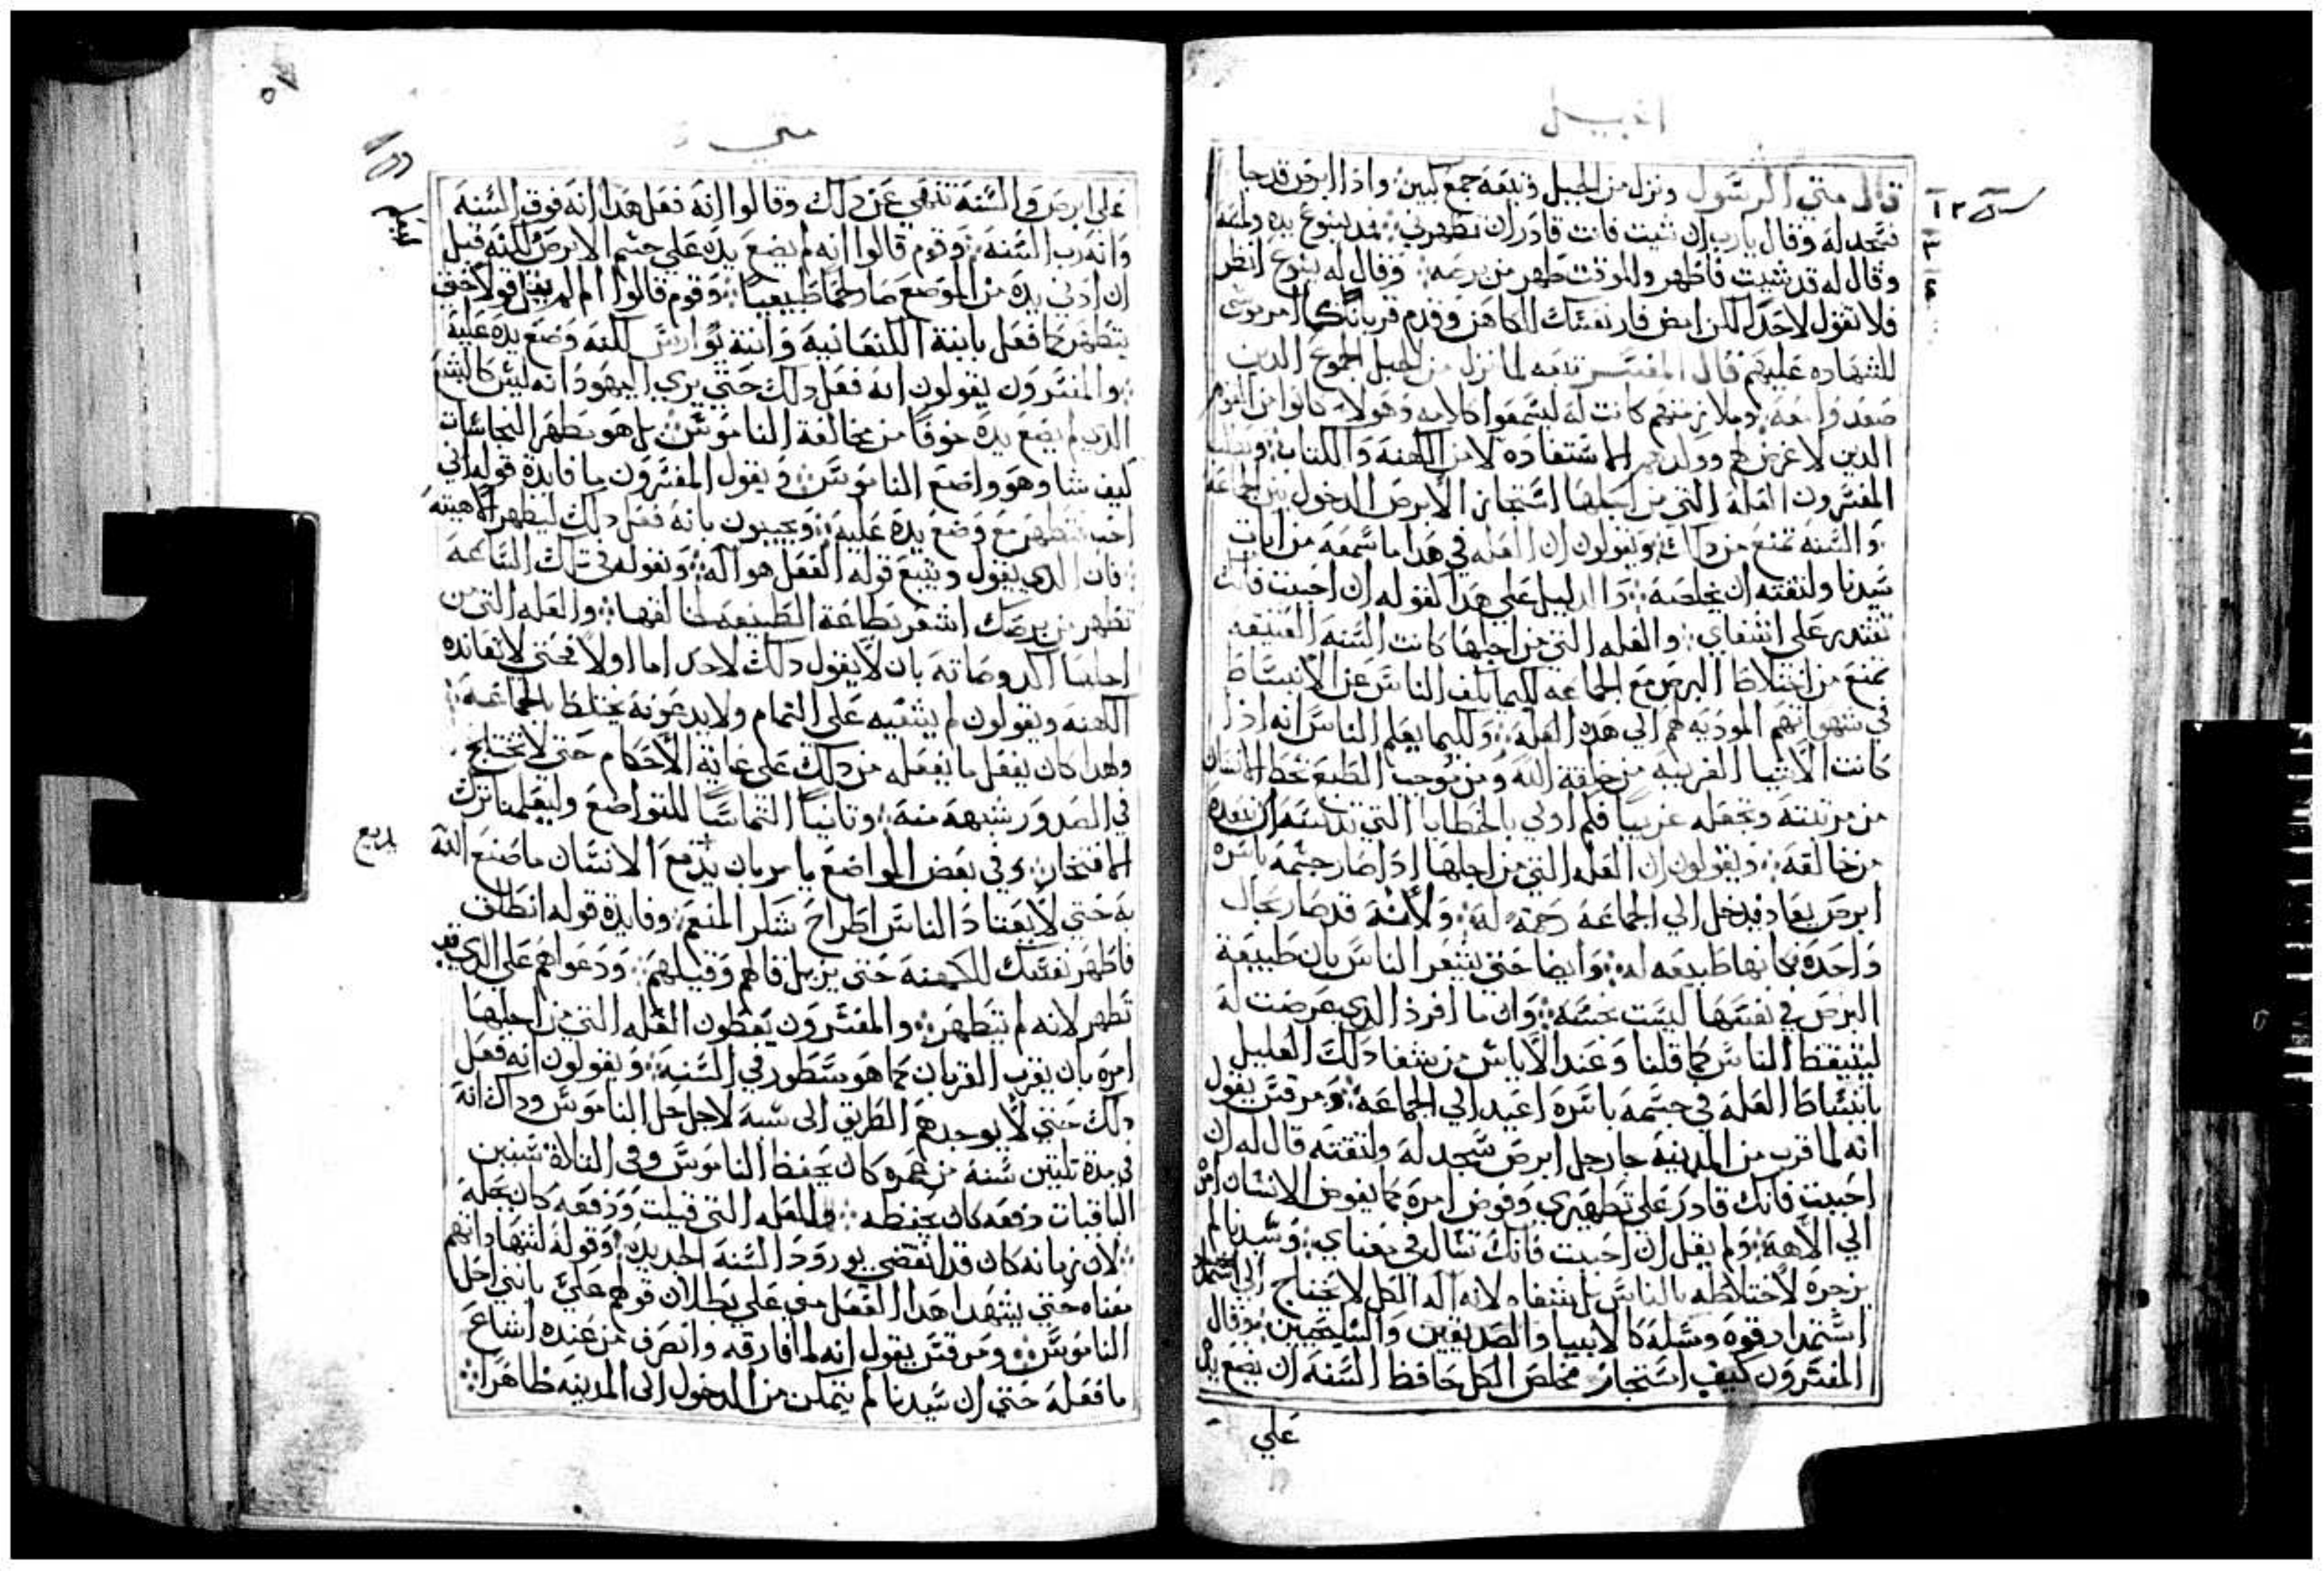 انجيل
قال متي الرسول ونزل من الجبل وتبعه جمع كبير واذا ابرص قد جا
فسجد له وقال يارب ان شيت فانت قادر ان تطهرني فمد يسوع يده ولمسه
وقال له قد شيت فاطهر وللوقت طهر من برصه وقال له يسوع انظر
فلا تقول لاحد لكن امض فار نفسك للكاهن وقدم قربانك كما امر موسى
للشهاده عليهم قال المفسر تبعه لما نزل من الجبل الجموع الدين
صعدوا معه وملازمتهم كانت له ليسمعوا كلامه وهولا كانوا من القوم
الدين لا غرض لهم وولدهم الاستفاده لا من الكهنه والكتاب ويطلب
المفسرون العله التي من اجلها استجاز الابرص الدخول بين الجماعة
والسنه تمنع من دلك ويقولون ان العله في هدا ما سمعه من ايات
سيدنا ولثقته ان يخلصه والدليل على هدا لقوله ان احببت فانت
تقتدر على اشفاي والعله التي من اجلها كانت السنه العتيقه
تمنع من اختلاط البرص مع الجماعه لكيما يلف الناس عن الانبساط
في شهواتهم الموديه لهم الى هده العله ولكيما يعلم الناس انه ادا
كانت الاشيا الغريبه من خلقة الله ومن توجب الطبع تحط الانسان
من مرتبته وتجعله غريبا فكم اولى بالخطايا التي تدنسه ان تبعده
من خالقه ويقولون ان العله التي من اجلها ادا صار جسمه باسره
ابرص يعاد فيدخل الى الجماعه رحمه له ولانه قد صار بحال
واحده كانها طبيعه له وايضا حتى يشعر الناس بان طبيعة
البرص في نفسها ليست نجسه وان ما افرد الدي عرضت له
ليتيقظ الناس كما قلنا وعند الاياس من شفا دلك العليل
بانبساط العله في جسمه باسره اعيد الى الجماعه ومرقس يقول
انه لما قرب من المدينه جا رجل ابرص سجد له ولثقته قال له ان
احببت فانك قادر على تطهيري وفوض امره كما يفوض الانسان امره
الى الالاهه ولم يقل ان احببت فانك تسال في معناي وسيدنا لم
يزجره لاختلاطه بالناس بل شفاه لانه اله الكل لا يحتاج الى استمداد
استمداد قوه ومسله كالانبيا والصديقين والسليحيين وقال
المفسرون كيف استجاز مخلص الكل حافظ السنه ان يضع يده
علي
متي
على ابرص والسنه تنهي عن دلك وقالوا انه فعل هدا انه فوق السنه
وانه رب السنه وقوم قالوا انه لم يضع يده على جسم الابرص لكنه قبل
ان ادنى يده من الموضع صار لحما طبيعيا وقوم قالوا
يتطهر كما فعل بابنة الكنعانيه وابنة يوارس لكنه وضع يده عليه
والمفسرون يقولون انه فعل دلك حتى يري اليهود انه ليس كاليشع
الدي لم يضع يده خوفا من مخالفة الناموس بل هو مطهر النجاسات
كيف شا وهو واضع الناموس ويقول المفسرون ما فايدة قوله اني
احب تتطهر مع وضع يده عليه ويجيبون بانه فعل دلك ليظهر الاهيته
فان الدي يقول ويتبع قوله الفعل هو اله وبقوله في تلك الساعه
تطهر من برصك اشعر بطاعة الطبيعه لخالقها والعله التي من
اجلها اكد وصاته بان لا يقول دلك لاحد اما اولا فحتى لا تعانده
الكهنه ويقولون لم يشفيه على التمام ولا يدعونه يختلط بالجماعه
وهدا كان يفعل ما يفعله من دلك على غاية الاحكام حتى لا تختلج
في الصدور شبهه منه وثانيا التماسا للتواضع وليعلمنا ترك
الافتخار وفي بعض المواضع يامر بان يديع الانسان ما صنع الله
به حتى لا يعتاد الناس اطراح شكر المنعم وفايدة قوله انطلق
فاظهر نفسك للكهنه حتى يزيل قالهم وقيلهم ودعواهم على الدي قد
تطهر لانه لم يتطهر والمفسرون يعطون العله التي من اجلها
امره بان يقرب القربان كما هو مسطور في السنه ويقولون انه فعل
دلك حتى لا يوجدهم الطريق الى شبه لاجل حل الناموس وداك انه
في مدة تلتين سنه من عمره كان يحفظ الناموس وفي التلاته سنين
الباقيات دفعه كان يحفظه والعله التي قيلت ودفعه كان يحله
لان زمانه كان قد انقضى بورود السنه الجديده وقوله لشهاداتهم
معناه حتى يشهد هدا الفعل مني على بطلان قولهم علي بانني احل
الناموس ومرقس يقول انه لما فارقه وانصرف من عنده اشاع
ما فعله حتى ان سيدنا لم يتمكن من الدخول الى المدينه ظاهرا